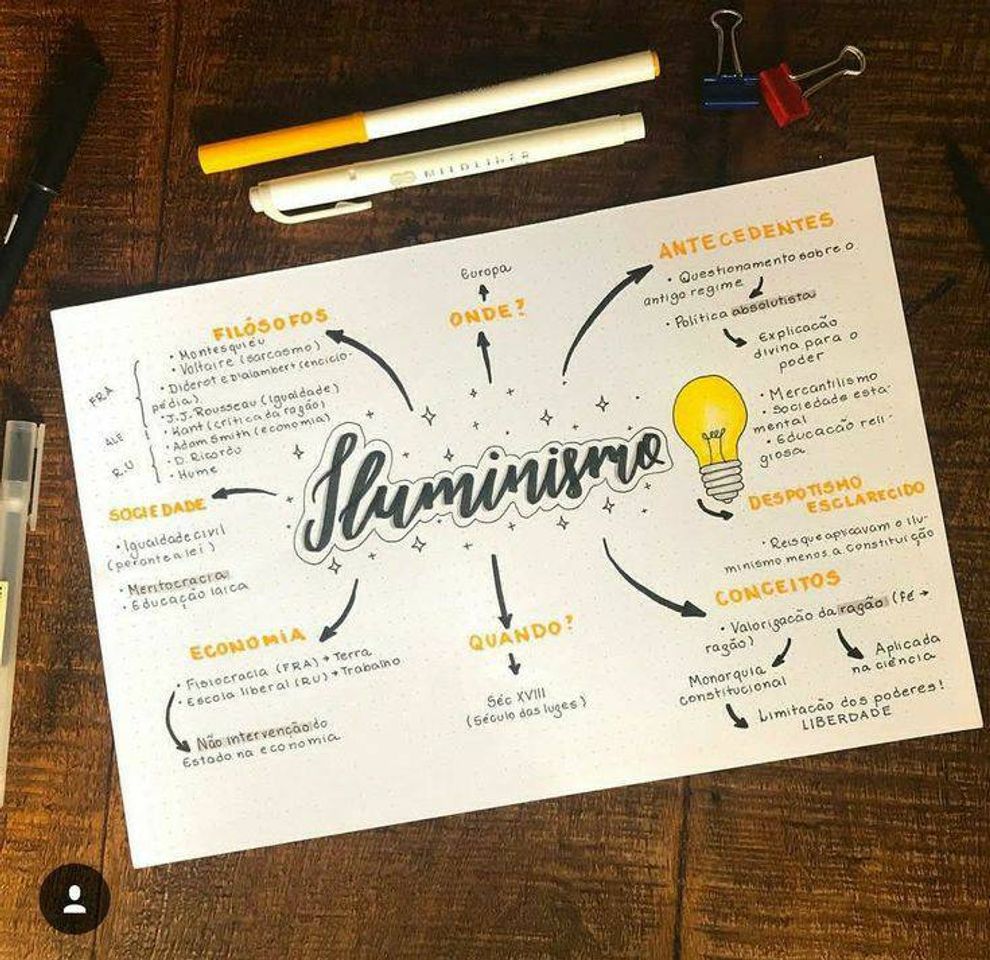 MILDLINER
Iluminismo
FILÓSOFOS
FRA
• Montesquieu
• Voltaire (sarcasmo)
• Diderot e Dialambert (enciclo-
pédia)
• J.J. Rousseau (igualdade)
ALE
• Kant (crítica da razão)
RU
• Adam Smith (economia)
• D. Ricardo
• Hume
ONDE?
Europa
ANTECEDENTES
• Questionamento sobre o
antigo regime
• Política absolutista
Explicação
divina para o
poder
• Mercantilismo
• Sociedade esta-
mental
• Educação reli-
giosa
DESPOTISMO
ESCLARECIDO
• Reis que aplicavam o ilu-
minismo menos a constituição
CONCEITOS
• Valorização da razão (fé →
razão)
Monarquia
constitucional
Aplicada
na ciência
Limitação dos poderes!
LIBERDADE
QUANDO?
Séc XVIII
(Século das luzes)
SOCIEDADE
• Igualdade civil
(perante a lei)
• Meritocracia
• Educação laica
ECONOMIA
• Fisiocracia (FRA) → Terra
• Escola liberal (RU) → Trabalho
Não intervenção do
Estado na economia